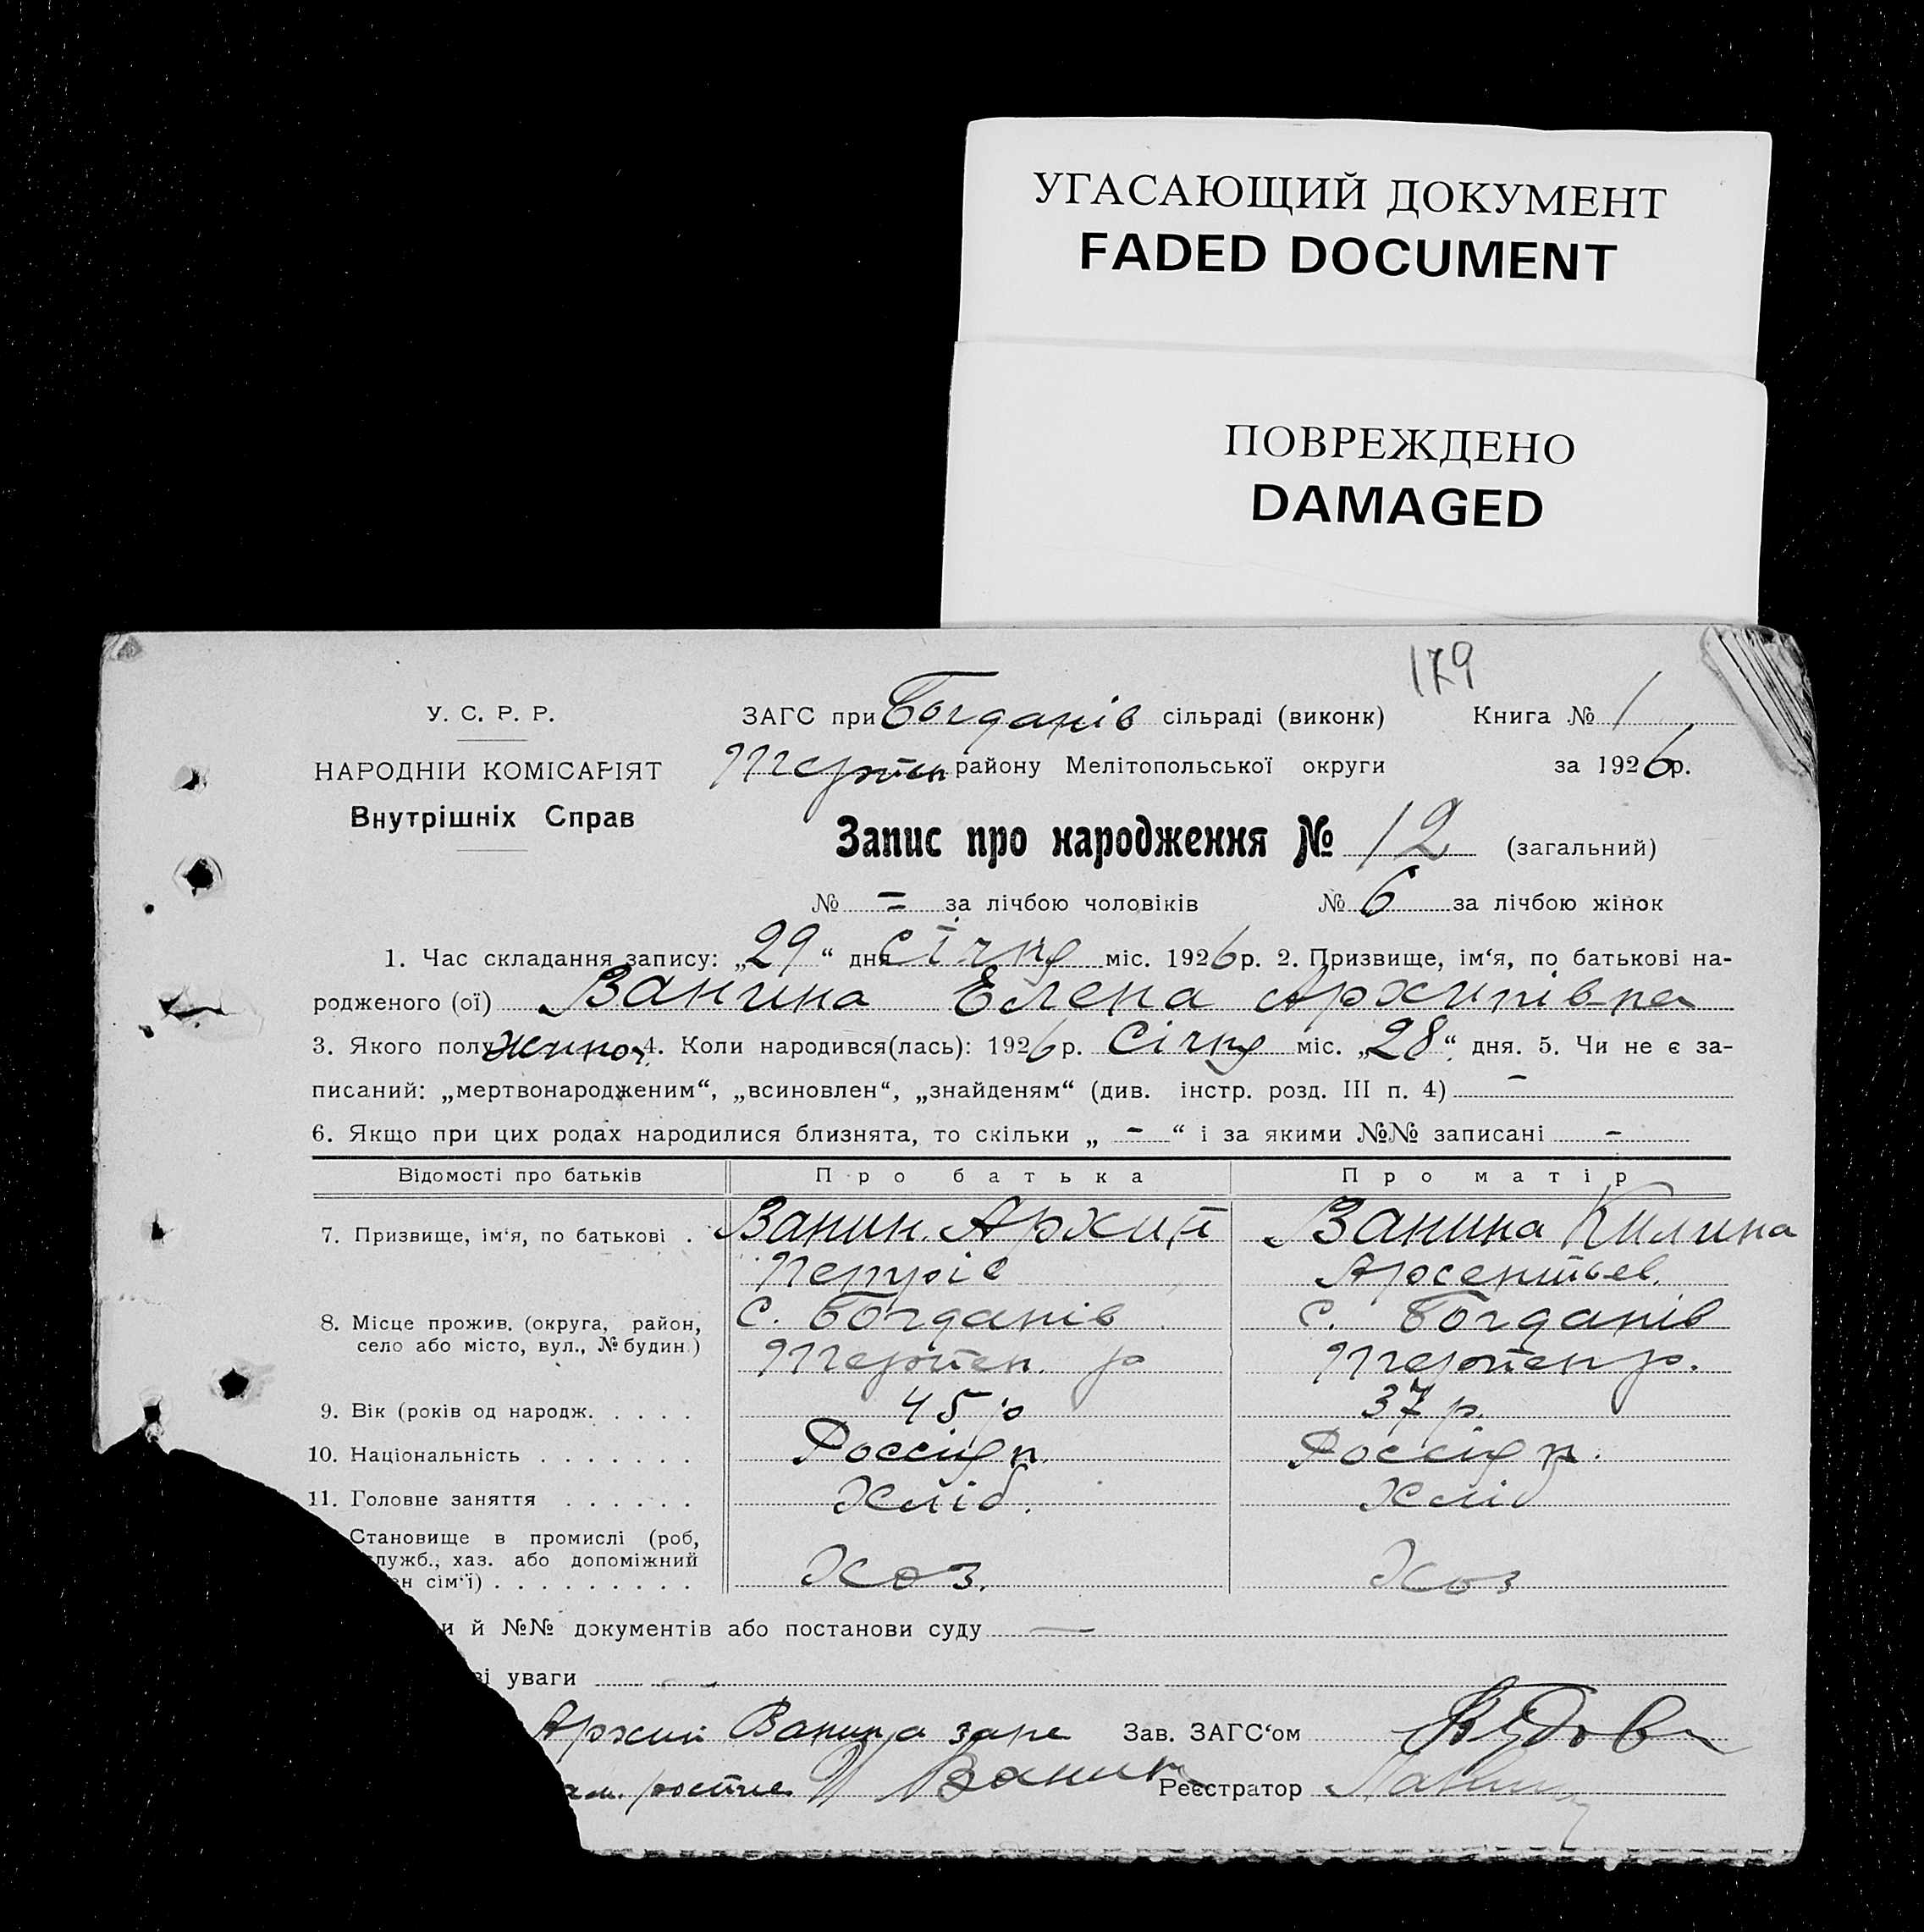 УГАСАЮЩИЙ ДОКУМЕНТ
FADED DOCUMENT
ПОВРЕЖДЕНО
DAMAGED
179
У. С. Р. Р.
НАРОДНІЙ КОМІСАРІЯТ
Внутрішніх Справ
ЗАГС при Богданів сільраді (виконк) Книга № 1
Терпен району Мелітопольської округи за 1926 р.
Запис про народження № 12 (загальний)
№ = за лічбою чоловіків № 6 за лічбою жінок
1. Час складання запису: „29“ дня січня міс. 1926 р. 2. Призвище, ім‘я, по батькові на-
родженого (ої) Ванина Елена Архипівна
3. Якого полу жиноч 4. Коли народився(лась): 1926 р. Січня міс. „28“ дня. 5. Чи не є за-
писаний: „мертвонародженим“, „всиновлен“, „знайденям“ (див. інстр. розд. III п. 4) -
6. Якщо при цих родах народилися близнята, то скільки „ - “ і за якими №№ записані -
Відомості про батьків Про батька Про матір
7. Призвище, ім‘я, по батькові . Ванин Архип Ванина Килина
Арсентьев.
8. Місце прожив. (округа, район, с. Богданів с. Богданів
село або місто, вул., № будин.) Терпен. р Терпен р.
9. Вік (років од народж. . . . . 45 р 37 р.
10. Національність . . . . . . . Россіян. Россіян.
11. Головне заняття . . . . . . Хліб. Хліб
Становище в промислі (роб,
служб., хаз. або допоміжний Хоз. Хоз
ен сім‘ї) . . . . . . . . .
и й №№ документів або постанови суду —
ві уваги
Архип Ванин Зав. ЗАГС‘ом
Ванин Реєстратор